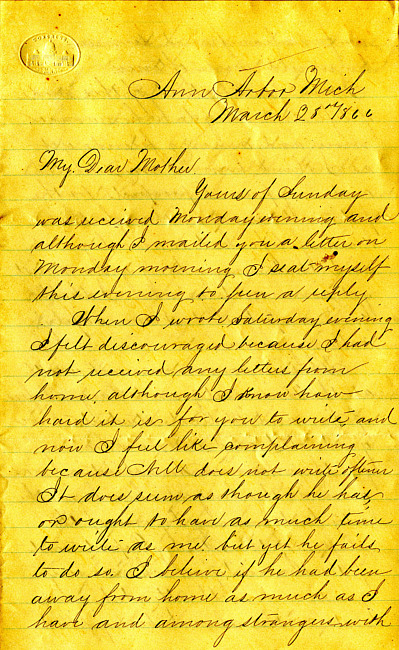 Ann Arbor Mich
March 28th 1866
My Dear Mother
Yours of Sunday
was received Monday evening and
although I mailed you a letter on
Monday morning I seat myself
this evening to pen a reply
When I wrote Saturday evening
I felt discouraged because I had
not received any letters from
home, although I know how
hard it is for you to write, and
now I feel like complaining
because Will does not write oftener
It does seem as though he has
or ought to have as much time
to write as me. but yet he fails
to do so. I belive if he had been
away from home as much as I
have and among strangers, with